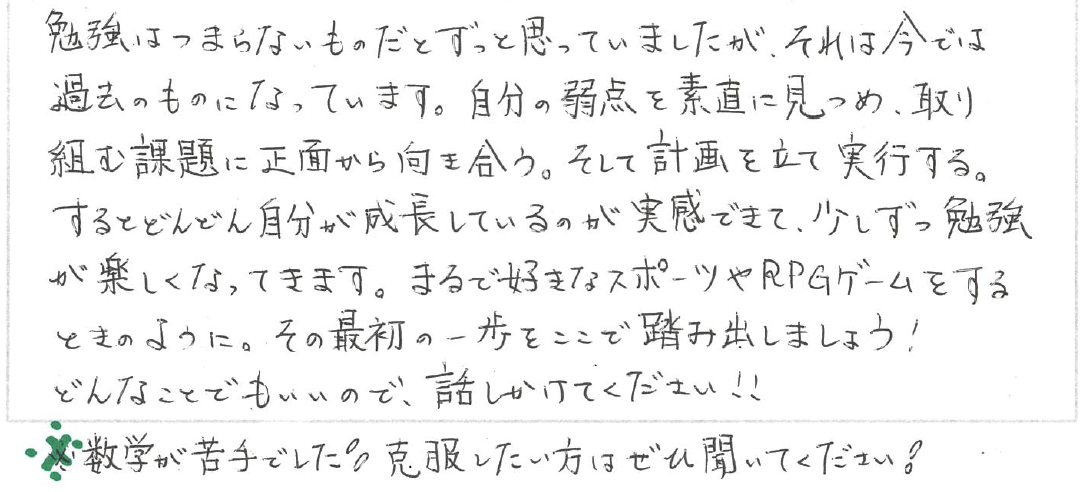 勉強はつまらないものだとずっと思っていましたが、それは今では
過去のものになっています。自分の弱点を素直に見つめ、取り
組む課題に正面から向き合う。そして計画を立て実行する。
するとどんどん自分が成長しているのが実感できて、少しずつ勉強
が楽しくなってきます。まるで好きなスポーツやRPGゲームをする
ときのように。その最初の一歩をここで踏み出しましょう!
どんなことでもいいので、話しかけてください!!
※数学が苦手でした!! 克服したい方はぜひ聞いてください!